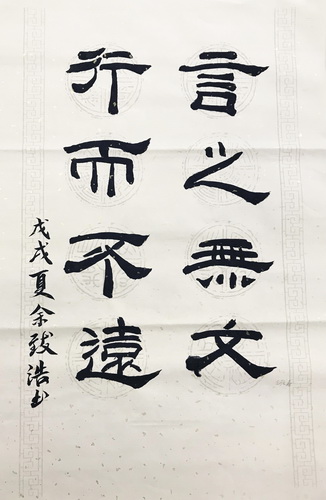 言之無文
行而不遠
戊戌夏余致浩书